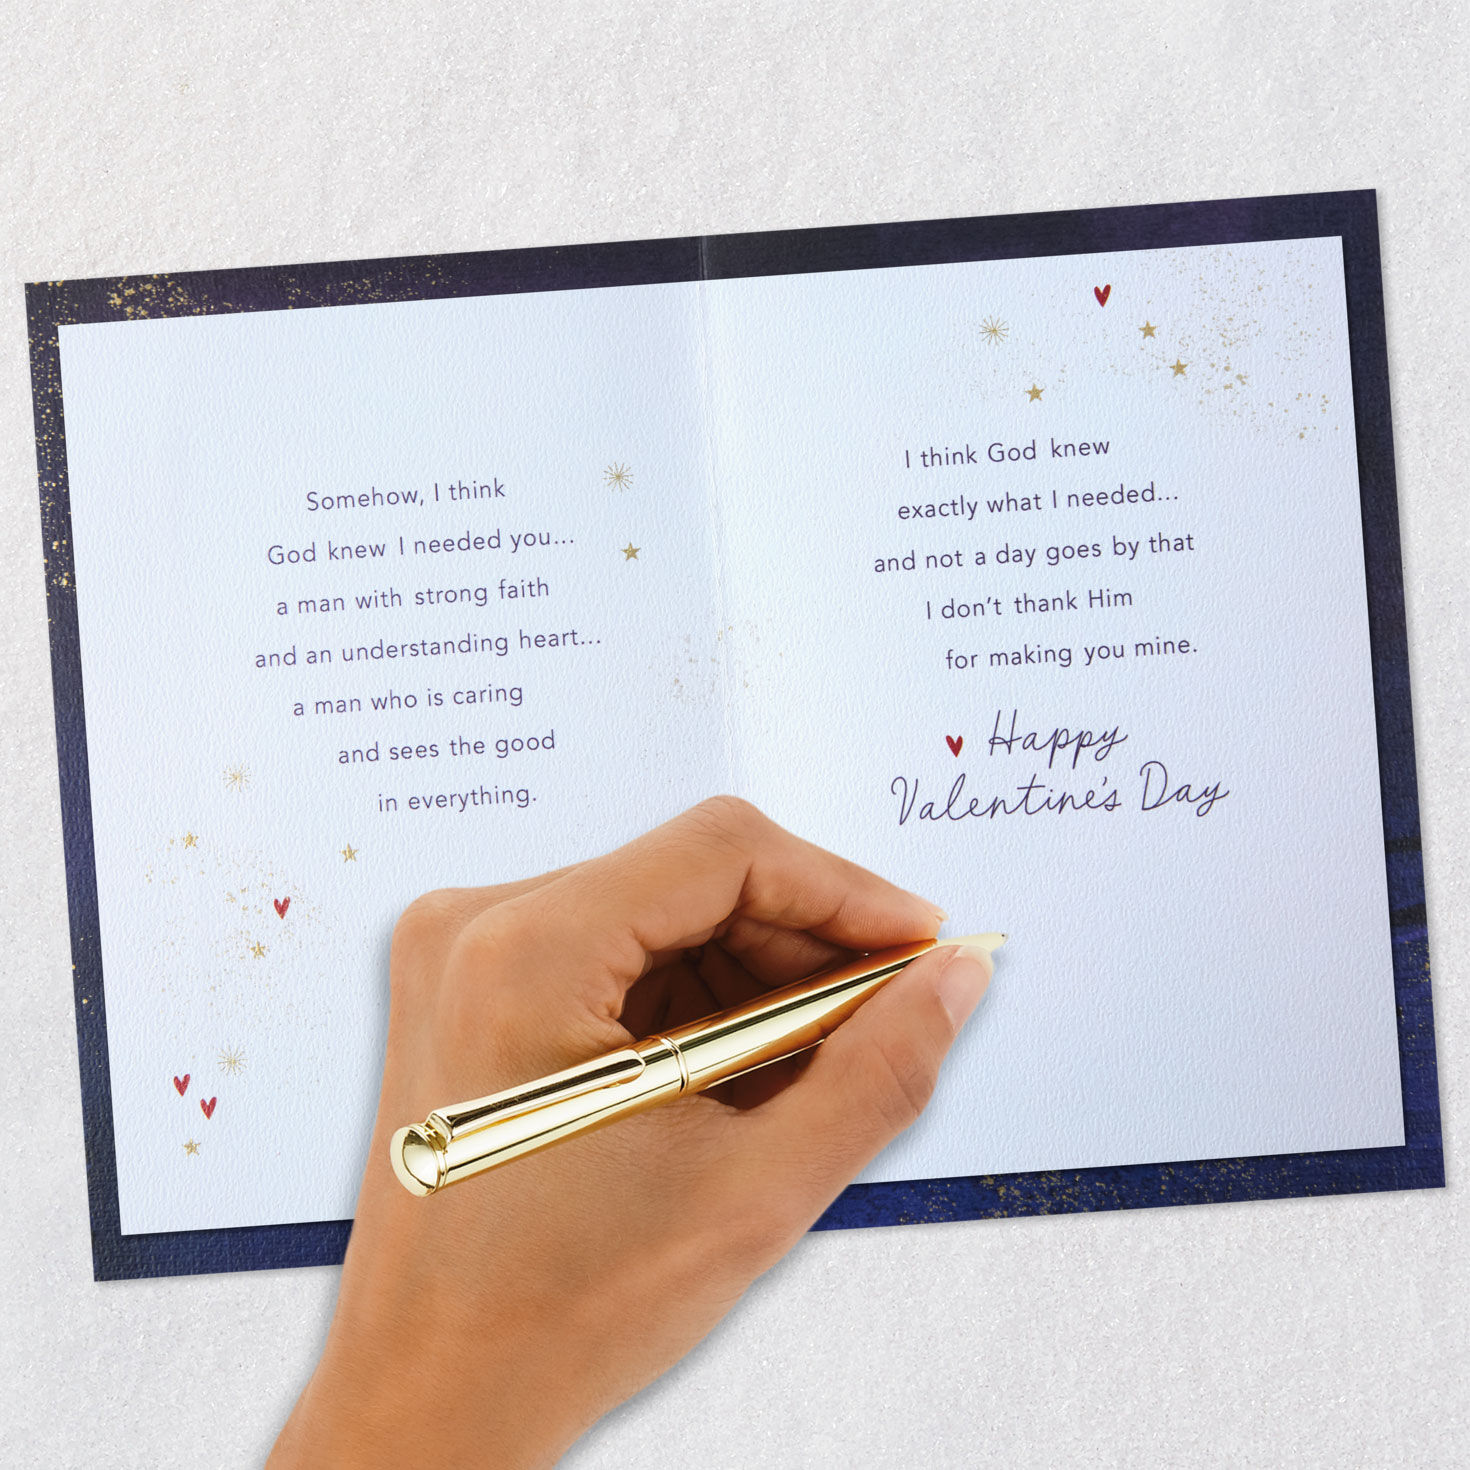 Somehow, I think
God knew I needed you...
a man with strong faith
and an understanding heart...
a man who is caring
and sees the good
in everything.
I think God knew
exactly what I needed...
and not a day goes by that
I don't thank Him
for making you mine.
Happy
Valentine's Day